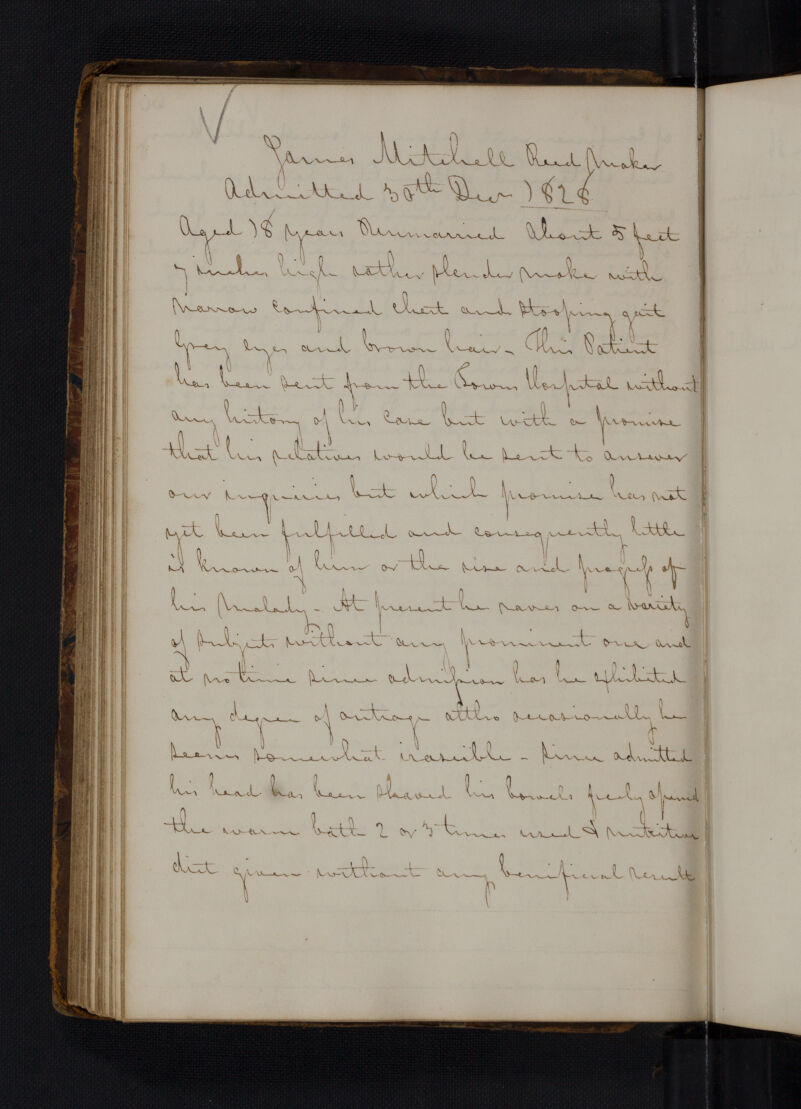 James Mitchell Reed Maker
Admitted 30th Decr 1828
Aged 18 years Unmarried About 5 feet
7 inches high rather slender make with
narrow confined chest and stooping gait
Grey eyes and brown hair - This Patient
has been sent from the Towns Hospital without
any history of his Case but with a promise
that his relatives would be sent to answer
our inquiries but which promise has not
yet been fulfilled and consequently little
is known of him or the rise and progress of
his Malady - At present he raves on a variety
of subjects without any prominent one and
at no time since admission has he exhibited
any degree of outrage altho occasionally he
seems somewhat irascible - Since admitted
his head has been shaved his bowels freely opened
the warm bath 2 or 3 times used & nutritive
diet given without any benificial result